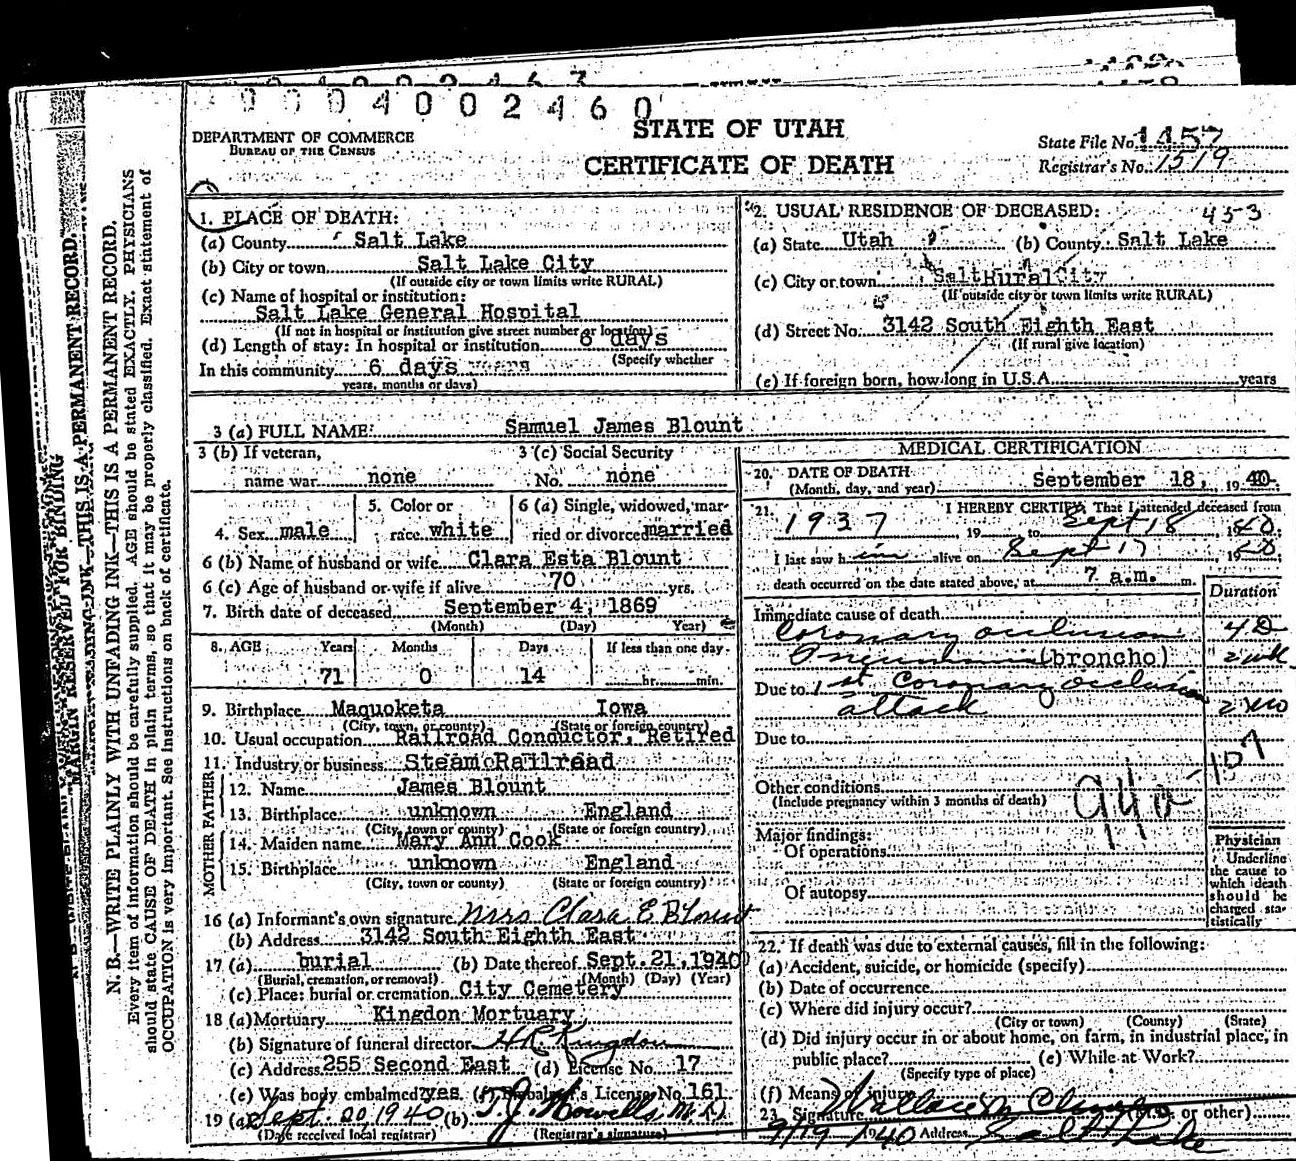 0004002460
STATE OF UTAH
CERTIFICATE OF DEATH
DEPARTMENT OF COMMERCE
BUREAU OF THE CENSUS
State File No. 1457
Registrar's No. 1519
MARGIN RESERVED FOR BINDING
N. B.—WRITE PLAINLY WITH UNFADING INK—THIS IS A PERMANENT RECORD.
Every item of information should be carefully supplied. AGE should be stated EXACTLY. PHYSICIANS
should state CAUSE OF DEATH in plain terms, so that it may be properly classified. Exact statement of
OCCUPATION is very important. See instructions on back of certificate.
1. PLACE OF DEATH:
(a) County Salt Lake
(b) City or town Salt Lake City
(If outside city or town limits write RURAL)
(c) Name of hospital or institution:
Salt Lake General Hospital
(If not in hospital or institution give street number or location)
(d) Length of stay: In hospital or institution 6 days
(Specify whether
In this community 6 days years
years, months or days)
2. USUAL RESIDENCE OF DECEASED: 453
(a) State Utah (b) County Salt Lake
(c) City or town Salt Rural City
(If outside city or town limits write RURAL)
(d) Street No. 3142 South Eighth East
(If rural give location)
(e) If foreign born, how long in U.S.A. years
3 (a) FULL NAME: Samuel James Blount
3 (b) If veteran,
name war none
3 (c) Social Security
No. none
4. Sex male
5. Color or
race white
6 (a) Single, widowed, mar-
ried or divorced married
6 (b) Name of husband or wife Clara Esta Blount
6 (c) Age of husband or wife if alive 70 yrs.
7. Birth date of deceased September 4, 1869
(Month) (Day) Year)
8. AGE Years Months Days If less than one day
71 0 14 hr. min.
9. Birthplace Maquoketa Iowa
(City, town, or county) (State or foreign country)
10. Usual occupation Railroad Conductor, Retired
11. Industry or business Steam Railroad
FATHER
12. Name James Blount
13. Birthplace unknown England
(City, town or county) (State or foreign country)
MOTHER
14. Maiden name Mary Ann Cook
15. Birthplace unknown England
(City, town or county) (State or foreign country)
16 (a) Informant's own signature Mrs Clara E Blount
(b) Address 3142 South Eighth East
17 (a) burial (b) Date thereof Sept. 21, 1940
(Burial, cremation, or removal) (Month) (Day) (Year)
(c) Place: burial or cremation City Cemetery
18 (a) Mortuary Kingdon Mortuary
(b) Signature of funeral director H.R. Kingdon
(c) Address 255 Second East (d) License No. 17
(e) Was body embalmed? yes (f) Embalmer's License No. 161
19 (a) Sept. 20, 1940 (b) T. J. Howells, M.D.
(Date received local registrar) (Registrar's signature)
MEDICAL CERTIFICATION
20. DATE OF DEATH
(Month, day, and year) September 18, 1940
21. I HEREBY CERTIFY, That I attended deceased from
1937 19 to Sept 18 1940
I last saw him alive on Sept 17 1940
death occurred on the date stated above, at 7 a.m. m.
Duration
Immediate cause of death
Coronary occlusion 4 D
Pneumonia (broncho) 2 wk
Due to 1st Coronary occlusion
attack
Due to
Other conditions
(Include pregnancy within 3 months of death)
94a 107
Major findings:
Of operations
Of autopsy
Physician
Underline
the cause to
which death
should be
charged sta-
tistically
22. If death was due to external causes, fill in the following:
(a) Accident, suicide, or homicide (specify)
(b) Date of occurrence
(c) Where did injury occur?
(City or town) (County) (State)
(d) Did injury occur in or about home, on farm, in industrial place, in
public place? (e) While at Work?
(Specify type of place)
(f) Means of injury
23. Signature Wallace (M.D. or other)
9/19 1940 Address Salt Lake